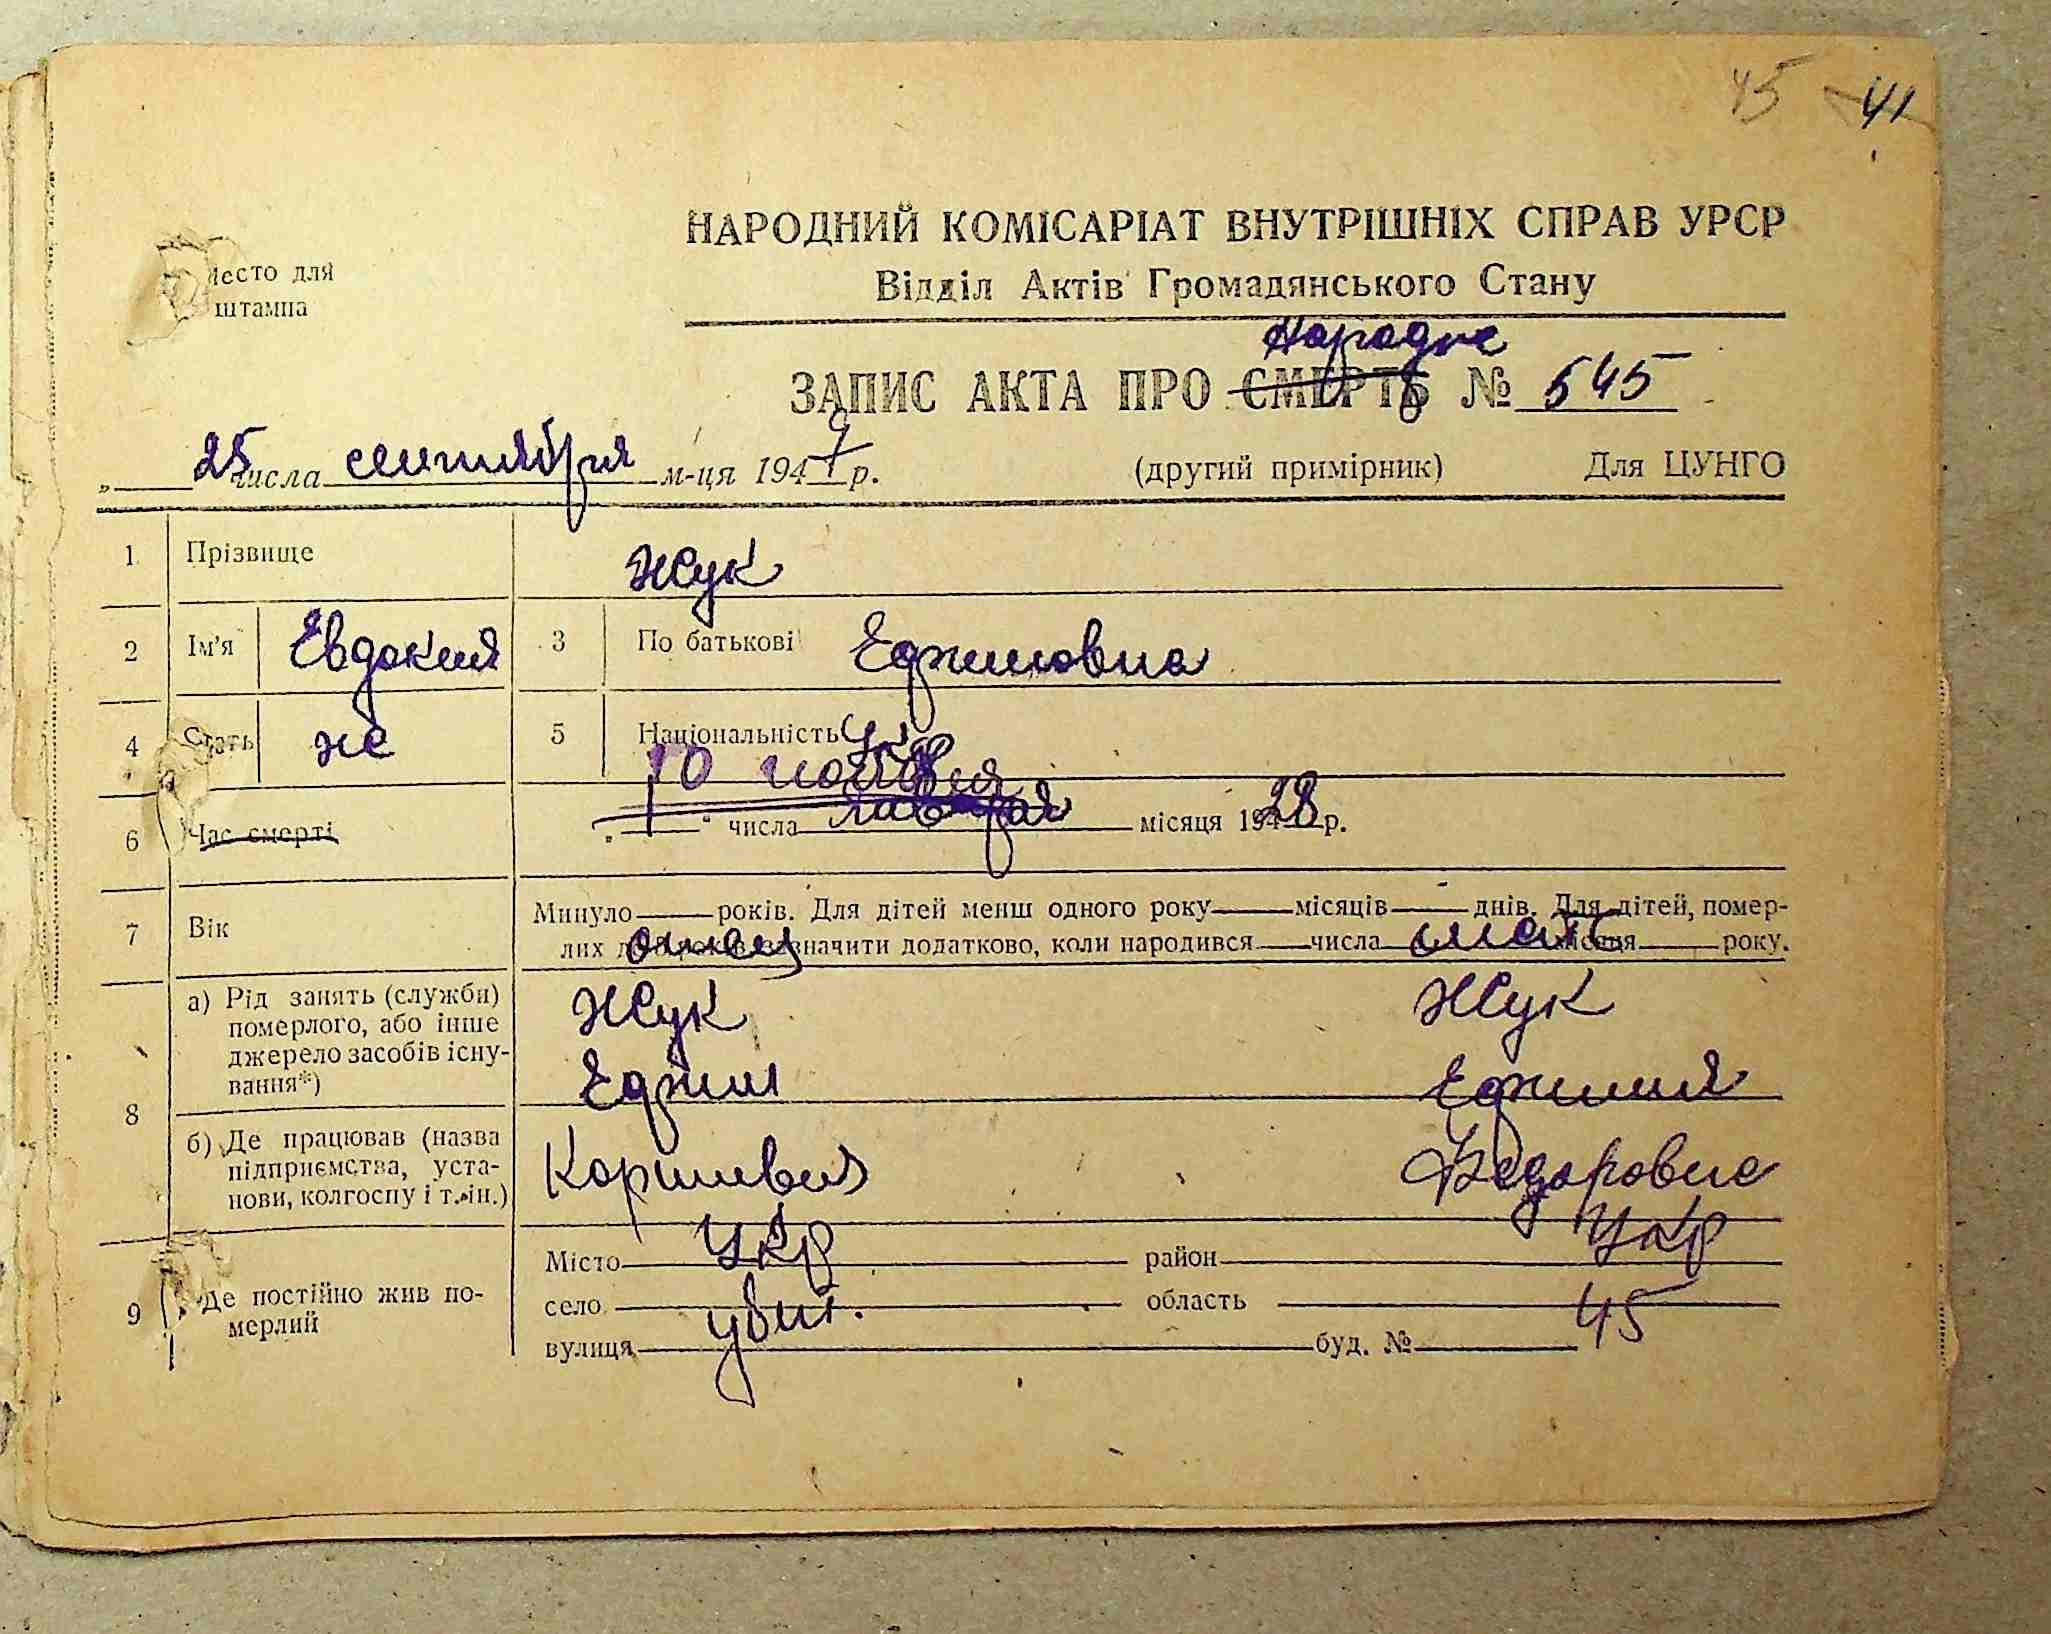 45 41
Место для
штампа
НАРОДНИЙ КОМІСАРІАТ ВНУТРІШНІХ СПРАВ УРСР
Відділ Актів Громадянського Стану
ЗАПИС АКТА ПРО СМЕРТЬ № 545
25 числа сентября м-ця 194 р.
(другий примірник) Для ЦУНГО
1 Прізвище Жук
2 Ім'я Евдокия 3 По батькові Ефимовна
4 Стать ж 5 Національність Укр
10 ноября
6 Час смерті „ “ числа місяця 1928 р.
7 Вік Минуло років. Для дітей менш одного року місяців днів. Для дітей, помер-
лих до років, зазначити додатково, коли народився числа місяця року.
отец мать
8 а) Рід занять (служби) померлого, або інше джерело засобів існування*)
Жук Жук
Ефим Ефимия
б) Де працював (назва підприємства, установи, колгоспу і т. ін.)
Федоровна
Укр Укр
9 Де постійно жив померлий
Місто район
село область
убит. 45
вулиця буд. №